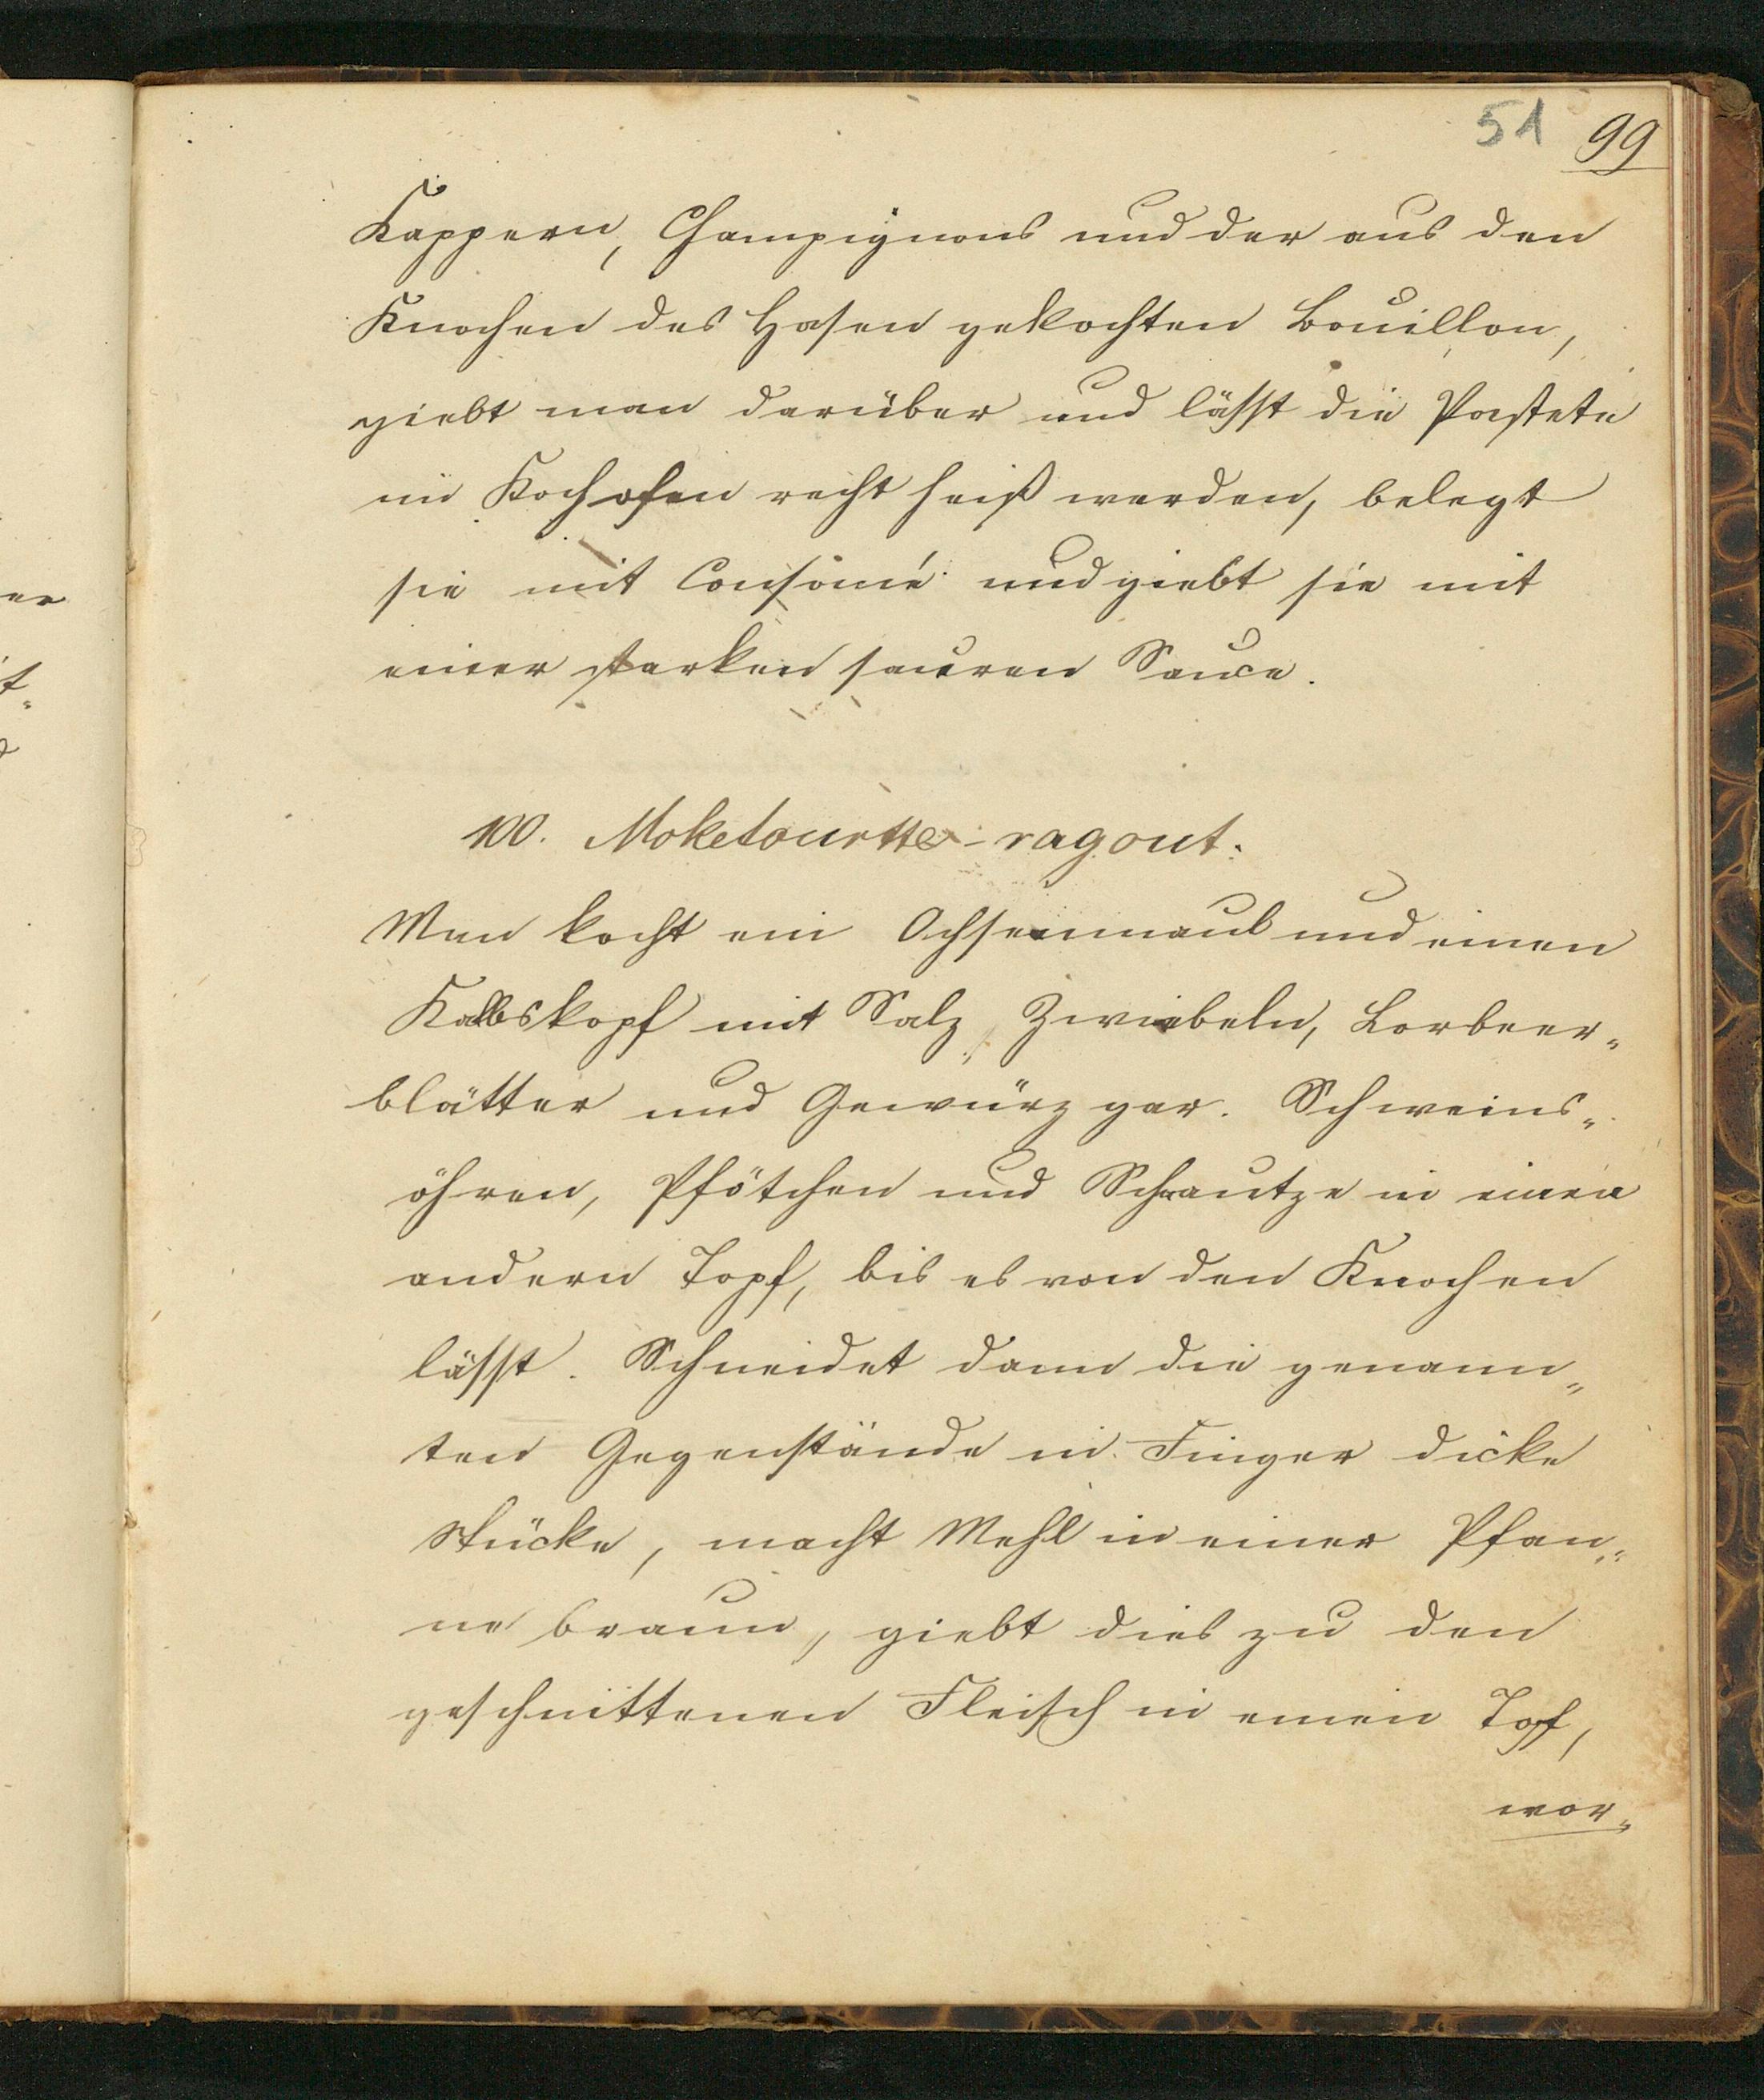 51 99
Kappern, Champignons und der aus den
Knochen des Hasen gekochten Bouillon,
giebt man darüber und lässt die Pastete
im Kochofen recht heiß werden, belegt
sie mit Consomé und giebt sie mit
einer starken sauren Sauce.
100. Moketourtte-ragout.
Man kocht ein Ochsenmaul und einen
Kalbskopf mit Salz, Zwiebeln, Lorbeer„
blätter und Gewürz gar. Schweins„
öhren, Pfötchen und Schnautze in einen
andern Topf, bis es von den Knochen
lässt. Schneidet dann die genann„
ten Gegenstände in Finger dicke
Stücke, macht Mehl in einer Pfan„
ne braun, giebt dies zu den
geschnittenen Fleisch in einen Topf,
wor„